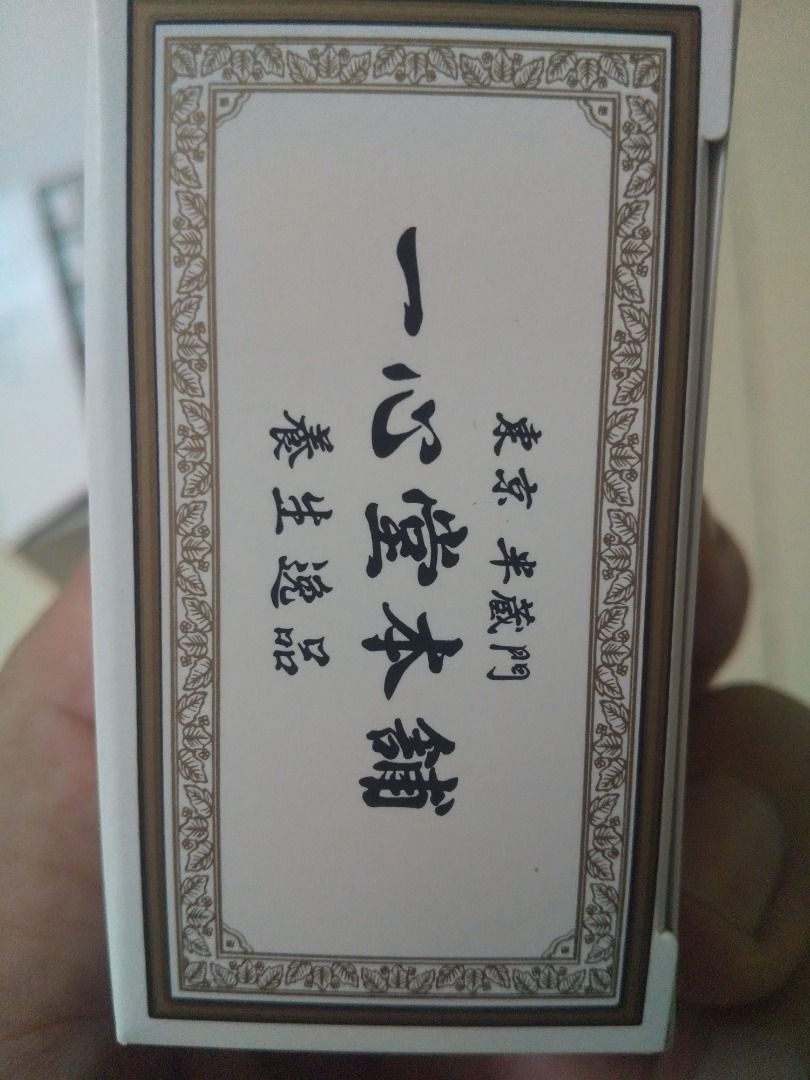 東京 半蔵門
一心堂本舗
養生逸品